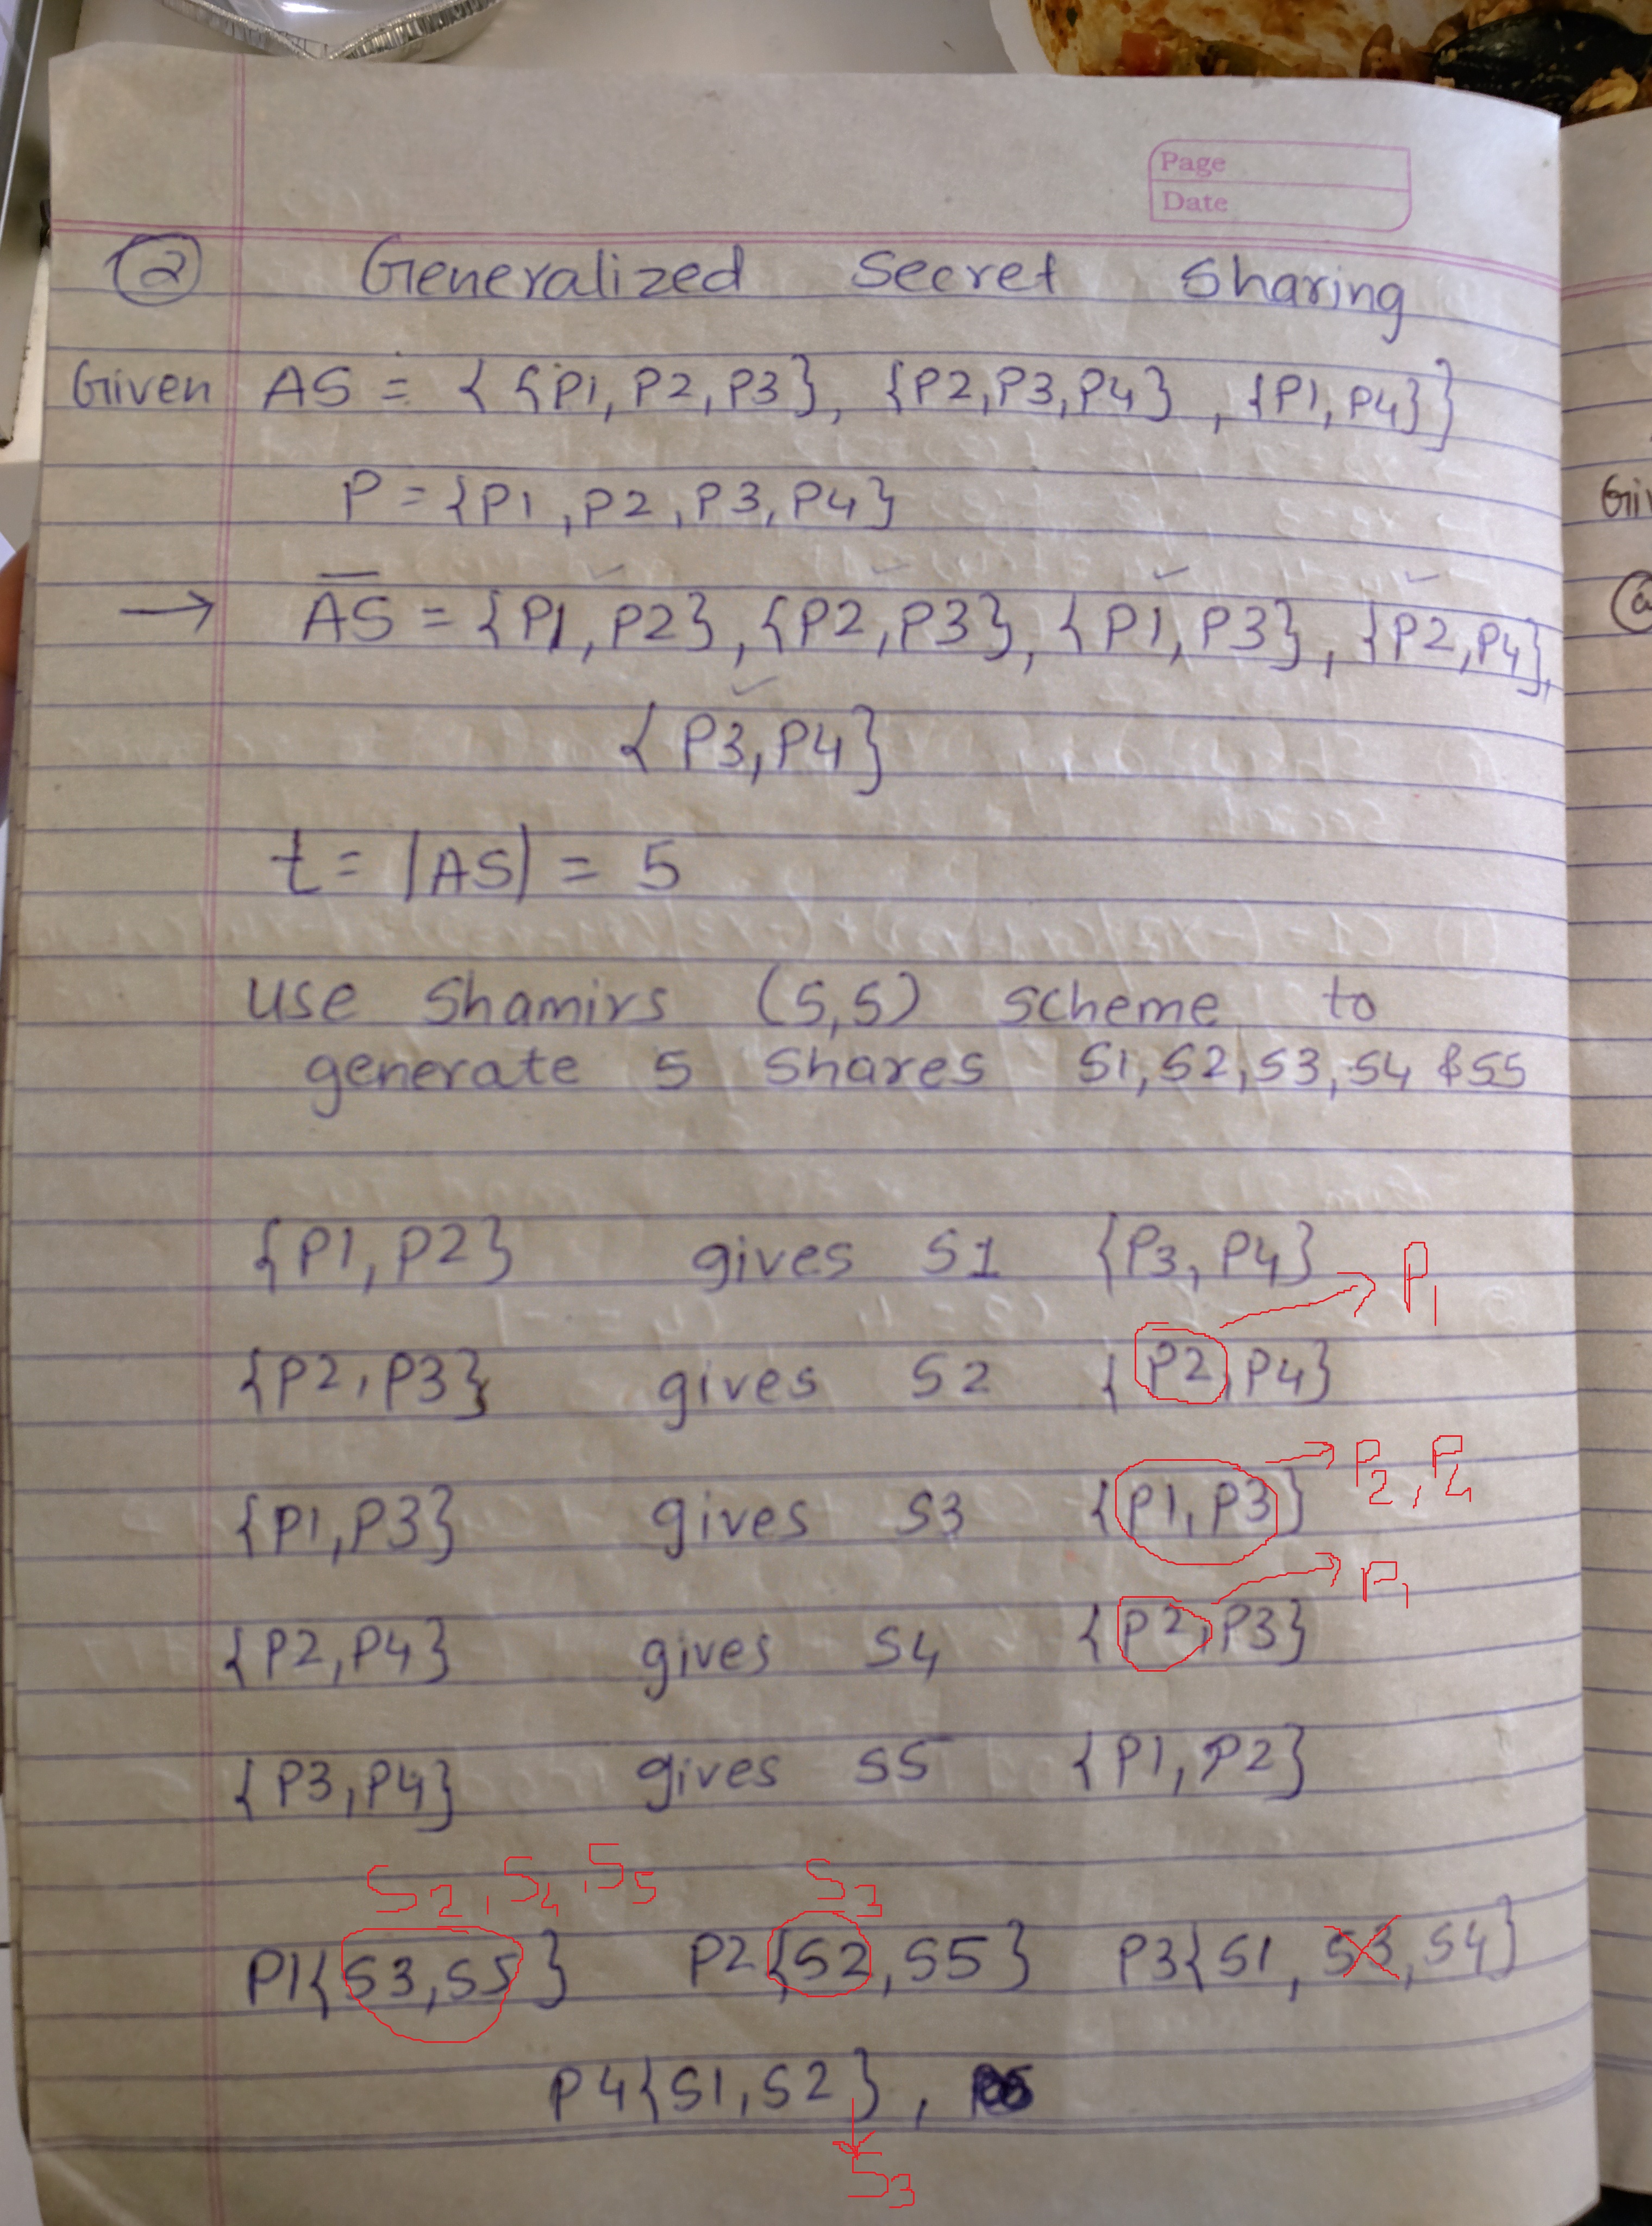 Page
Date
② Generalized Secret Sharing
Given AS = { {P1, P2, P3}, {P2, P3, P4}, {P1, P4}}
P = {P1, P2, P3, P4}
→ A̅S̅ = {P1, P2}, {P2, P3}, {P1, P3}, {P2, P4},
{P3, P4}
t = |AS| = 5
use Shamirs (5,5) scheme to
generate 5 shares S1, S2, S3, S4 & S5
{P1, P2} gives S1 {P3, P4}
P1
{P2, P3} gives S2 {P2, P4}
P2, P4
{P1, P3} gives S3 {P1, P3}
P1
{P2, P4} gives S4 {P2, P3}
{P3, P4} gives S5 {P1, P2}
S2, S4, S5 S3
P1{S3, S5} P2{S2, S5} P3{S1, S3, S4}
P4{S1, S2},
S3